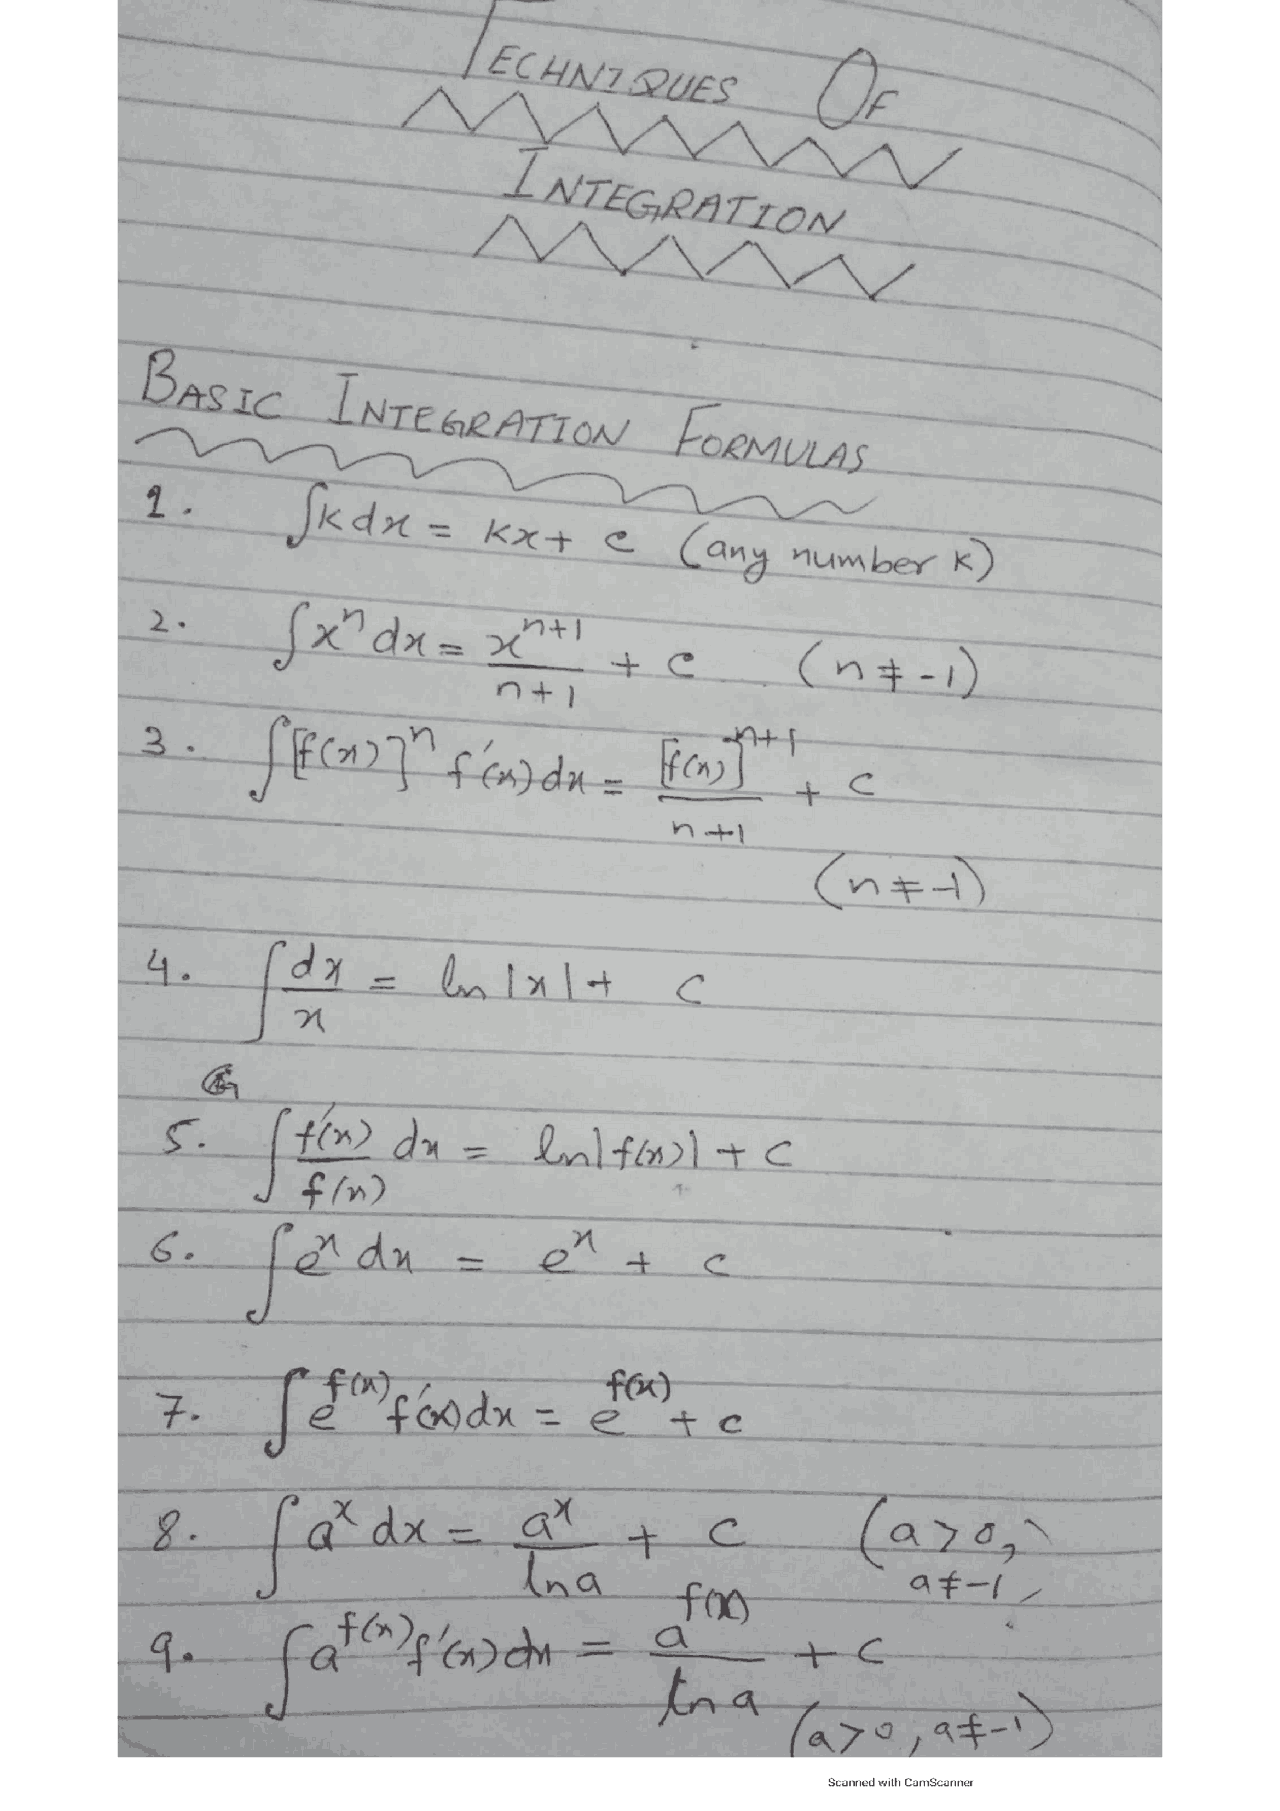 TECHNIQUES OF
INTEGRATION
BASIC INTEGRATION FORMULAS
1. ∫k dx = kx + c (any number k)
2. ∫xⁿ dx = xⁿ⁺¹/n+1 + c (n ≠ -1)
3. ∫[f(x)]ⁿ f'(x) dx = [f(x)]ⁿ⁺¹/n+1 + c
(n ≠ -1)
4. ∫dx/x = ln |x| + c
5. ∫f'(x)/f(x) dx = ln|f(x)| + c
6. ∫eˣ dx = eˣ + c
7. ∫e^f(x) f'(x) dx = e^f(x) + c
8. ∫aˣ dx = aˣ/ln a + c (a > 0, a ≠ -1)
9. ∫a^f(x) f'(x) dx = a^f(x)/ln a + c
(a > 0, a ≠ -1)
Scanned with CamScanner